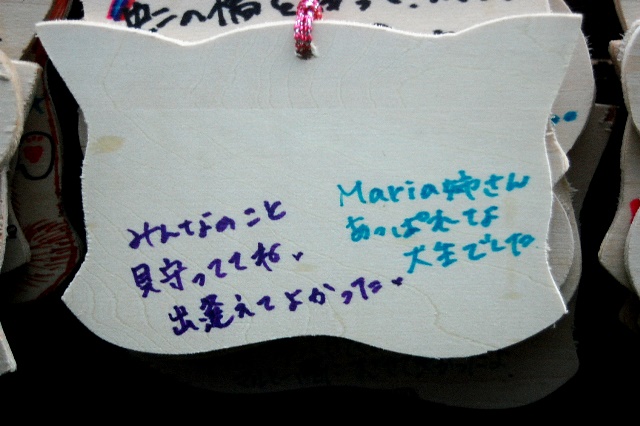 虹の橋を
みんなのこと
見守っててね.
出逢えてよかった.
Maria姉さん
あっぱれな
犬生でした